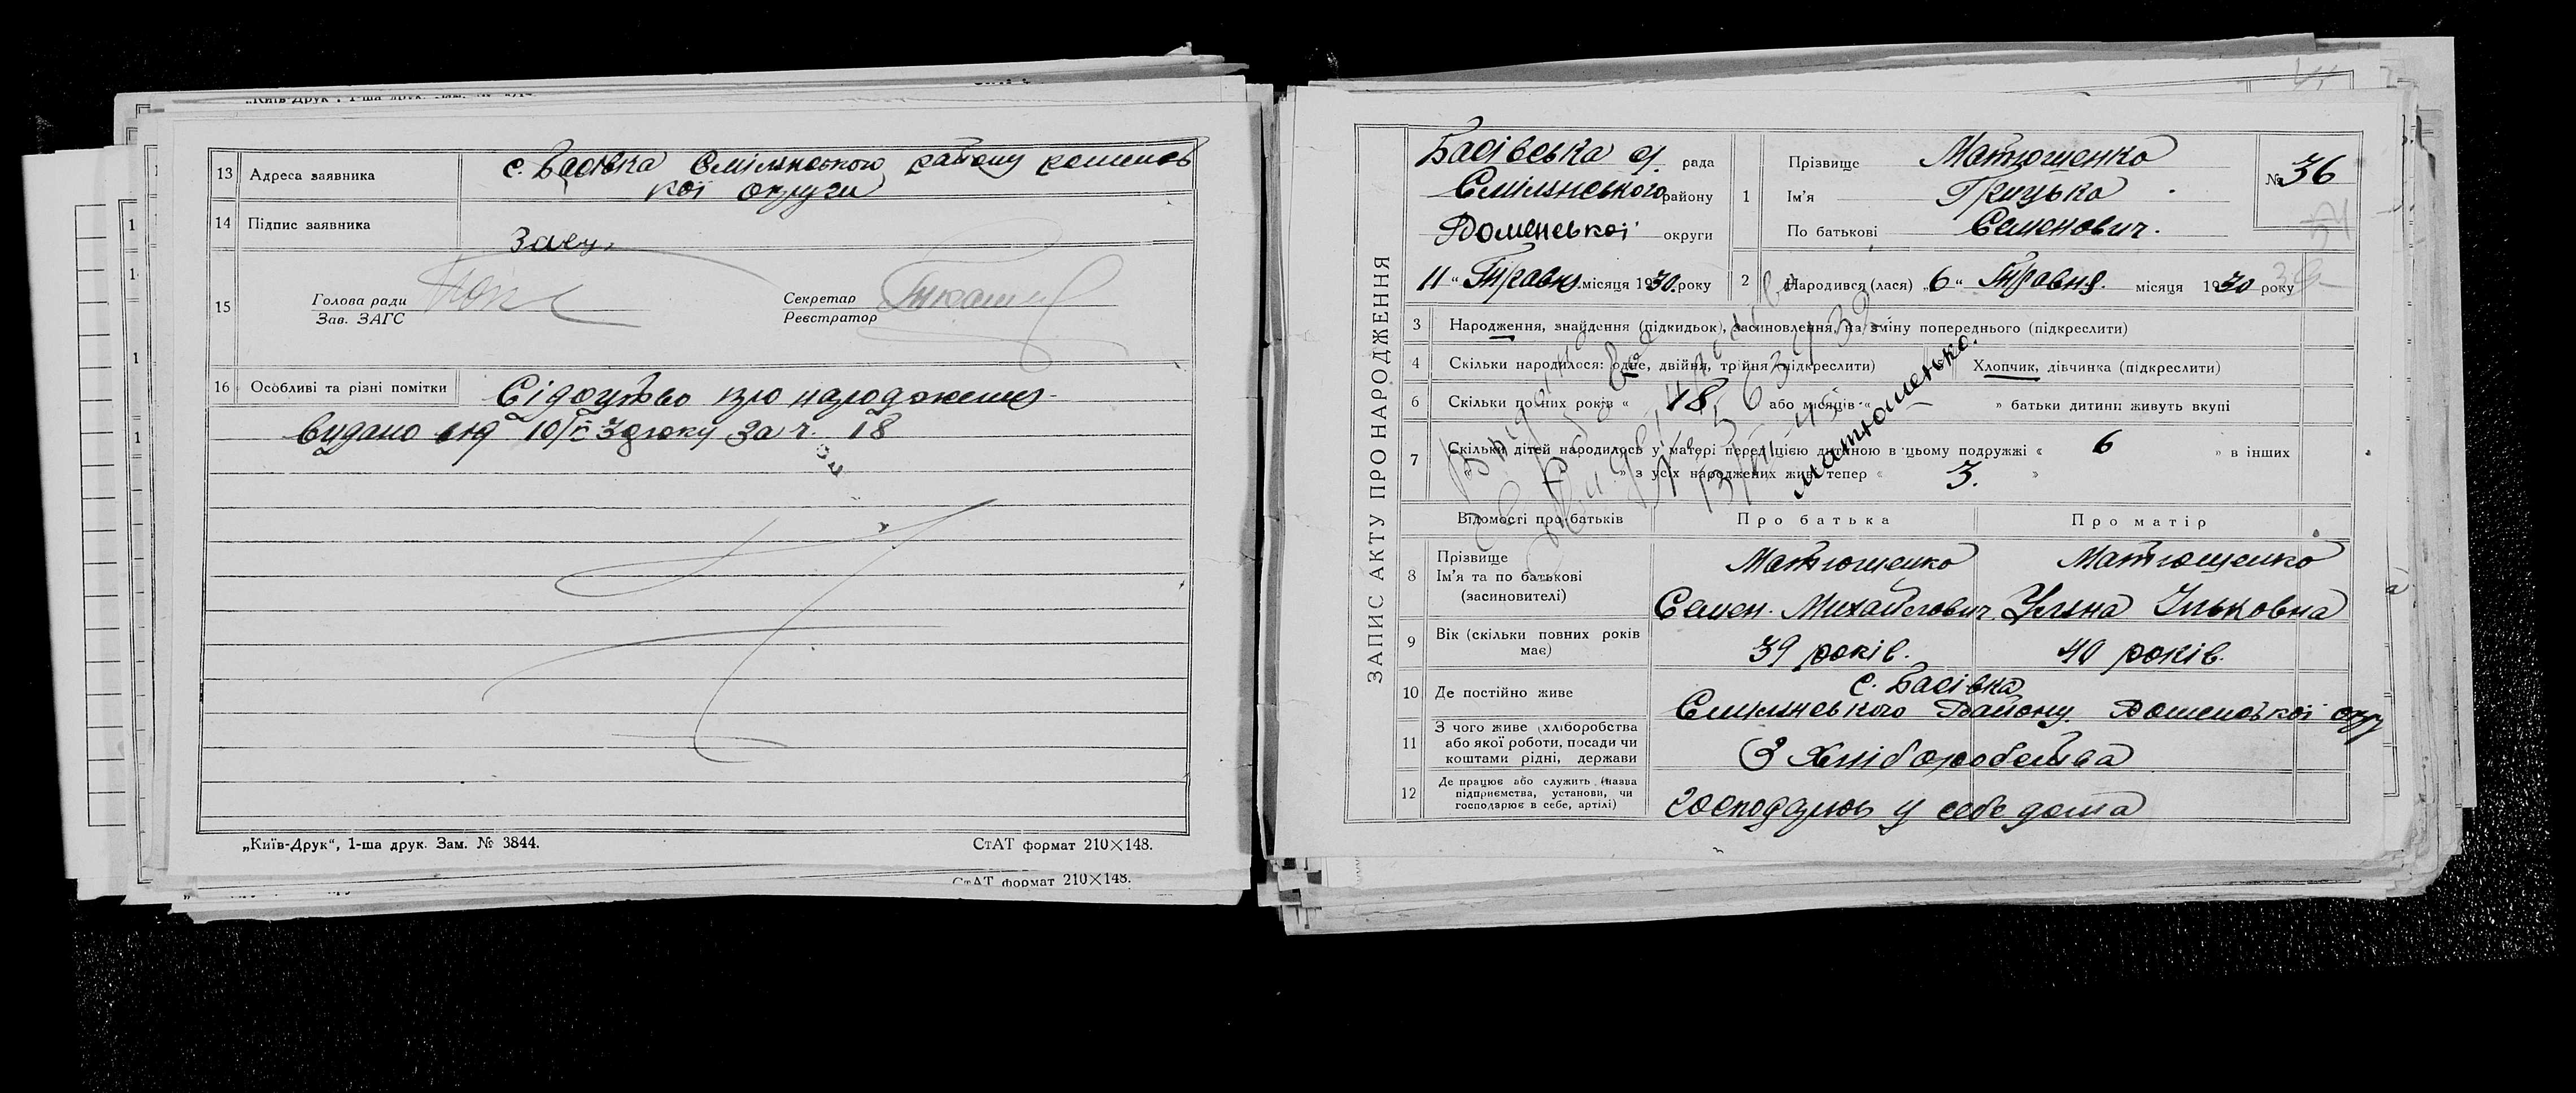 „Київ-Друк", 1-ша друк. Зам. №
13 Адреса заявника с. Басівка Смілянського району роменсь
кої округи
14 Підпис заявника
Заєц.
15 Голова ради
Зав. ЗАГС
Секретар
Реєстратор
16 Особливі та різні помітки Сідоцтво про народження
видано від 10/V 30 року за ч. 18
„Київ-Друк", 1-ша друк. Зам. № 3844. СтАТ формат 210×148.
СтАТ формат 210×148.
ЗАПИС АКТУ ПРО НАРОДЖЕННЯ
Басівська с/. рада
Смілянського району
Роменської округи
11 „ Травня місяця 1930. року
1 Прізвище Матющенко
Ім'я Грицько
По батькові Семенович.
№ 36
2 Народився (лася) „6" Травня. місяця 1930 року
3 Народження, знайдення (підкидьок), засиновлення, на зміну попереднього (підкреслити)
4 Скільки народилося: одне, двійня, трійня (підкреслити) Хлопчик, дівчинка (підкреслити)
6 Скільки повних років « 18 або місяців « » батьки дитини живуть вкупі
7 Скільки дітей народилось у матері перед цією дитиною в цьому подружжі « 6 » в інших
« » з усіх народжених живі тепер « 3. »
Матюшенько.
Відомості про батьків Про батька Про матір
8 Прізвище
Ім'я та по батькові
(засновителі)
Матющенко Матющенко
Семен Михайлович. Уляна Ільковна
9 Вік (скільки повних років
має)
39 років. 40 років.
10 Де постійно живе с. Басівка
Смілянського Району Роменської окру
11 З чого живе (хліборобства
або якої роботи, посади чи
коштами рідні, держави
З Хліборобства
12 Де працює або служить (назва
підприємства, установи, чи
господарює в себе, артілі)
Господарюю у себе дома